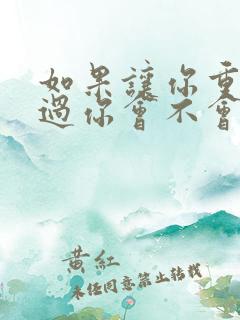 如果讓你重
過你會不會
黃紅
未经同意禁止转载